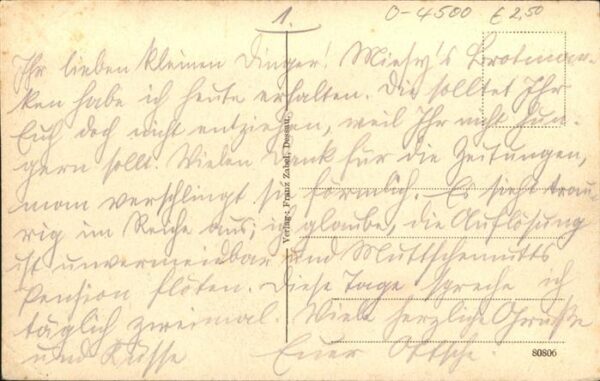 1.
O-4500 £2,50
Ihr lieben kleinen Dinger! Miesy's Brotmar-
ken habe ich heute erhalten. Die solltet Ihr
Euch doch nicht entziehen, weil Ihr nicht hun-
gern sollt. Vielen Dank für die Zeitungen,
man verschlingt sie förmlich. Es sieht trau-
rig im Reiche aus; ich glaube, die Auflösung
ist unvermeidbar und Muttschemutts
Pension flöten. Diese Tage spreche ich
täglich zweimal. Viele herzliche Grüsse
und Küsse Euer Ottsche.
Verlag: Franz Zabel, Dessau.
80806